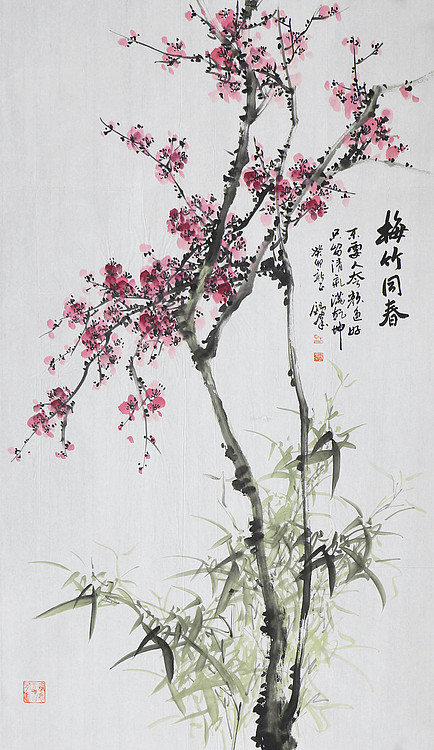 梅竹同春
不要人夸颜色好
只留清氣滿乾坤
癸卯